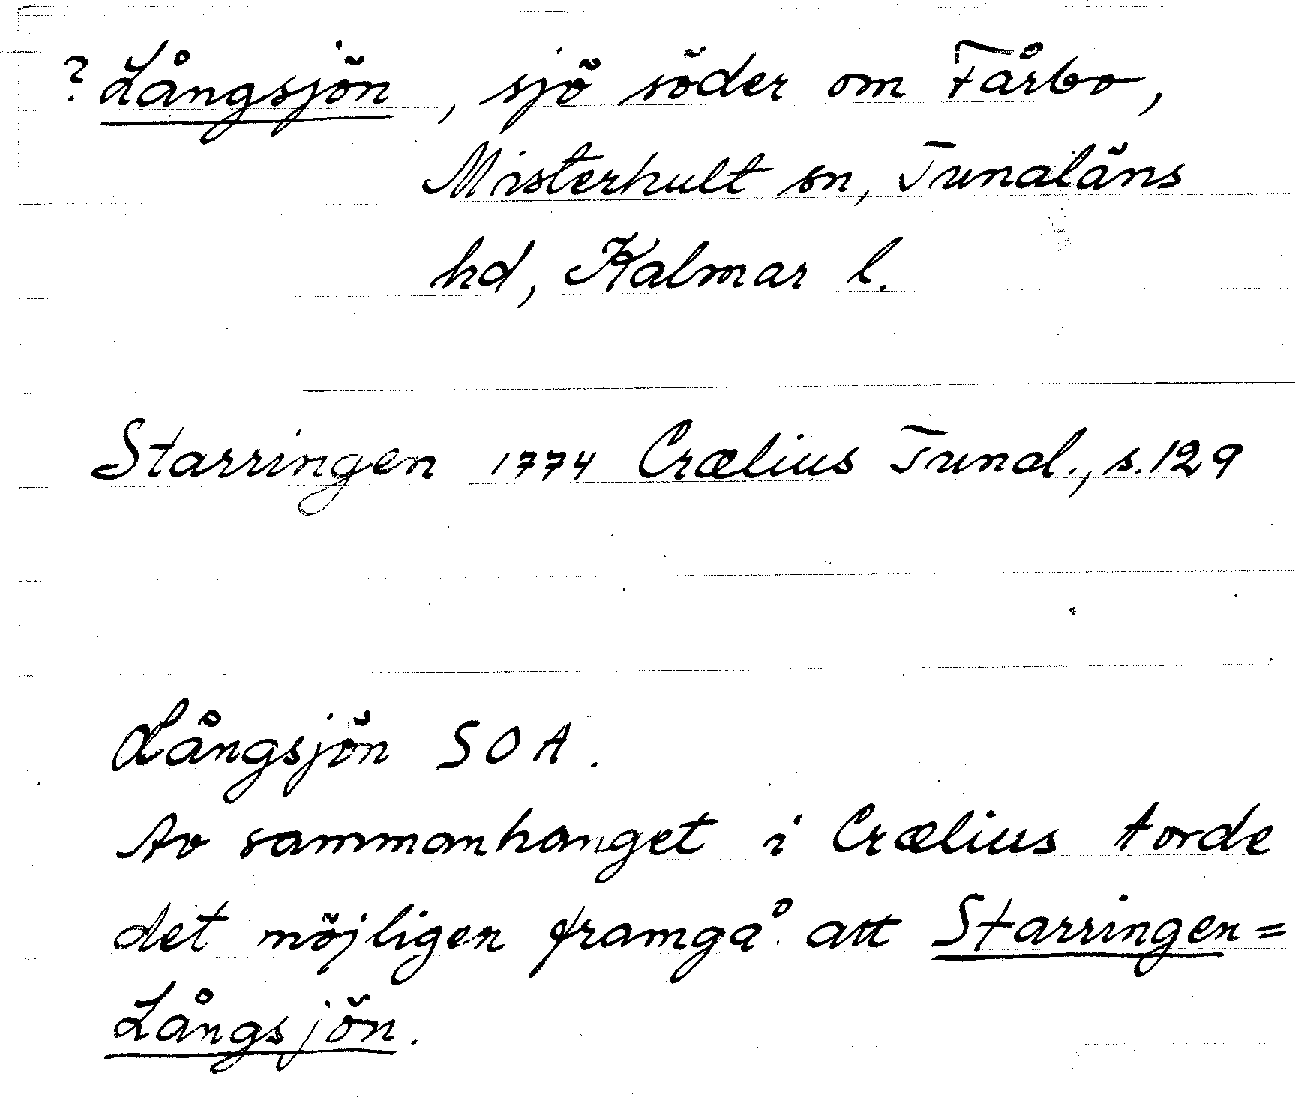 ? Långsjön, sjö söder om Fårbo,
Misterhult sn, Tunaläns
hd, Kalmar l.
Starringen 1774 Crælius Tunal., s. 129
Långsjön SOA.
Av sammanhanget i Crælius torde
det möjligen framgå att Starringen =
Långsjön.